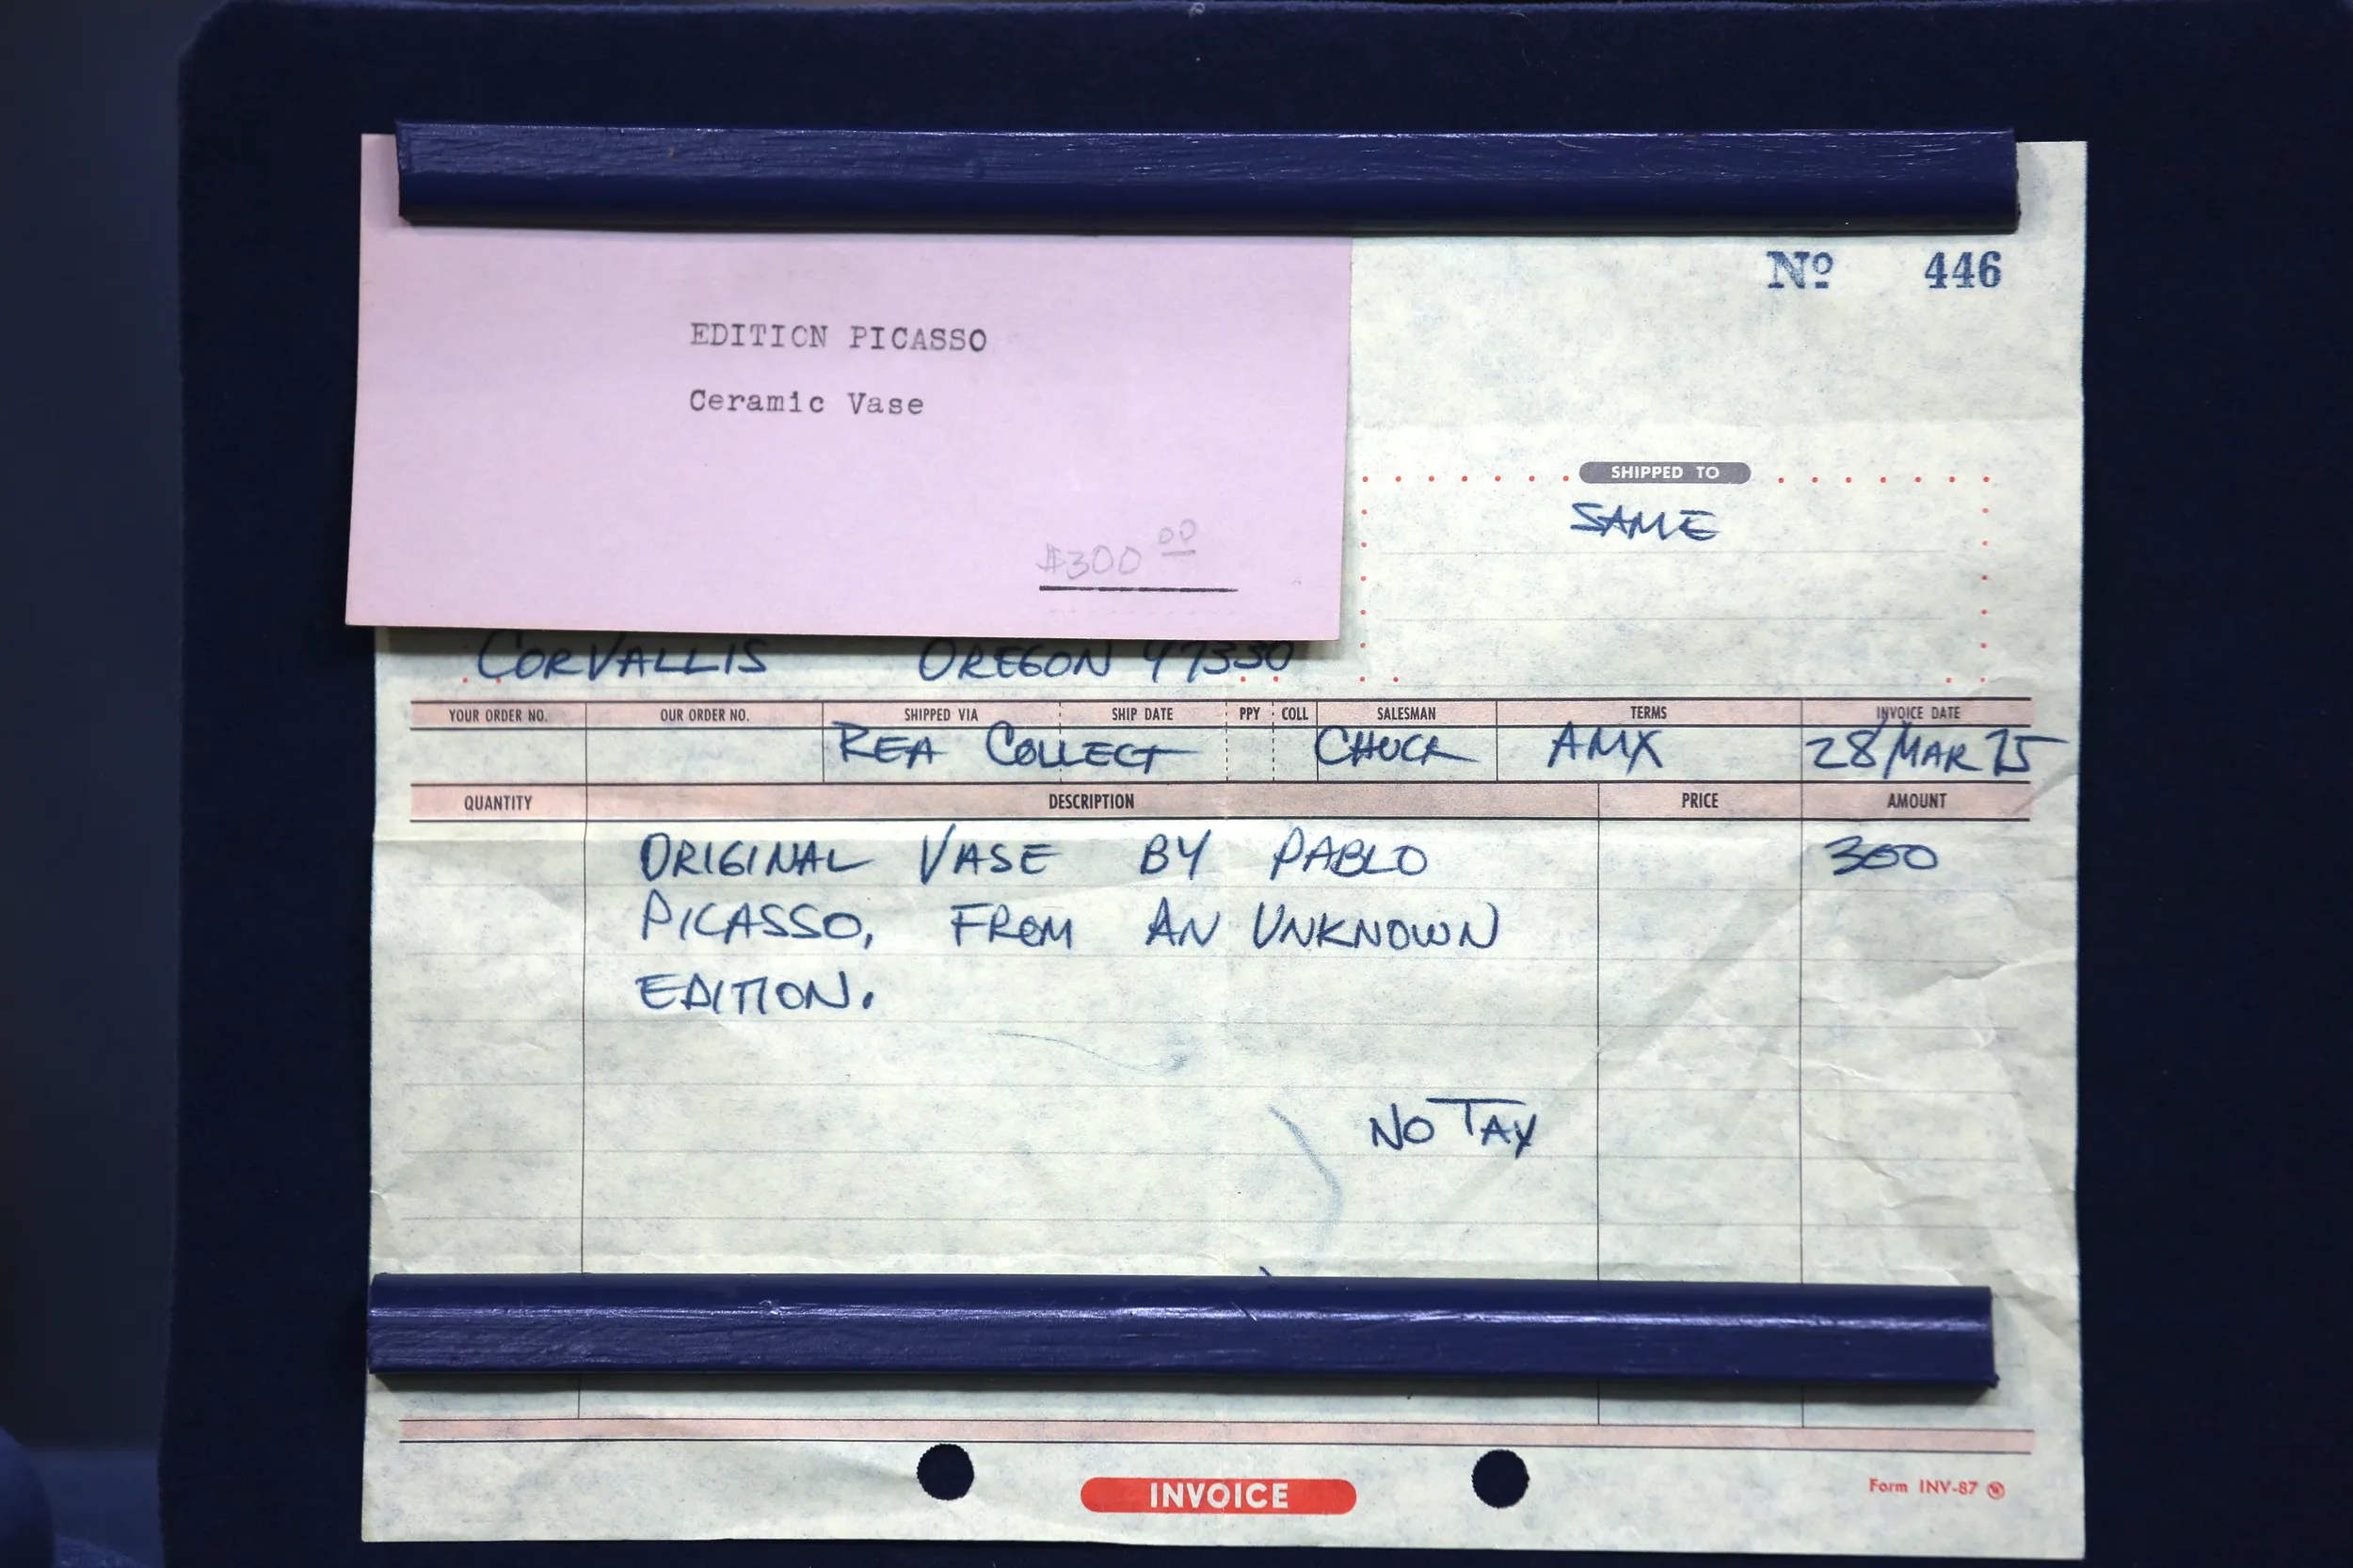 Nº 446
EDITION PICASSO
Ceramic Vase
$300 00
SHIPPED TO
SAME
CORVALLIS OREGON 97330
YOUR ORDER NO. OUR ORDER NO. SHIPPED VIA SHIP DATE PPY COLL SALESMAN TERMS INVOICE DATE
REA COLLECT CHUCK AMX 28/MAR 75
QUANTITY DESCRIPTION PRICE AMOUNT
ORIGINAL VASE BY PABLO 300
PICASSO, FROM AN UNKNOWN
EDITION.
NO TAX
INVOICE
Form INV-87